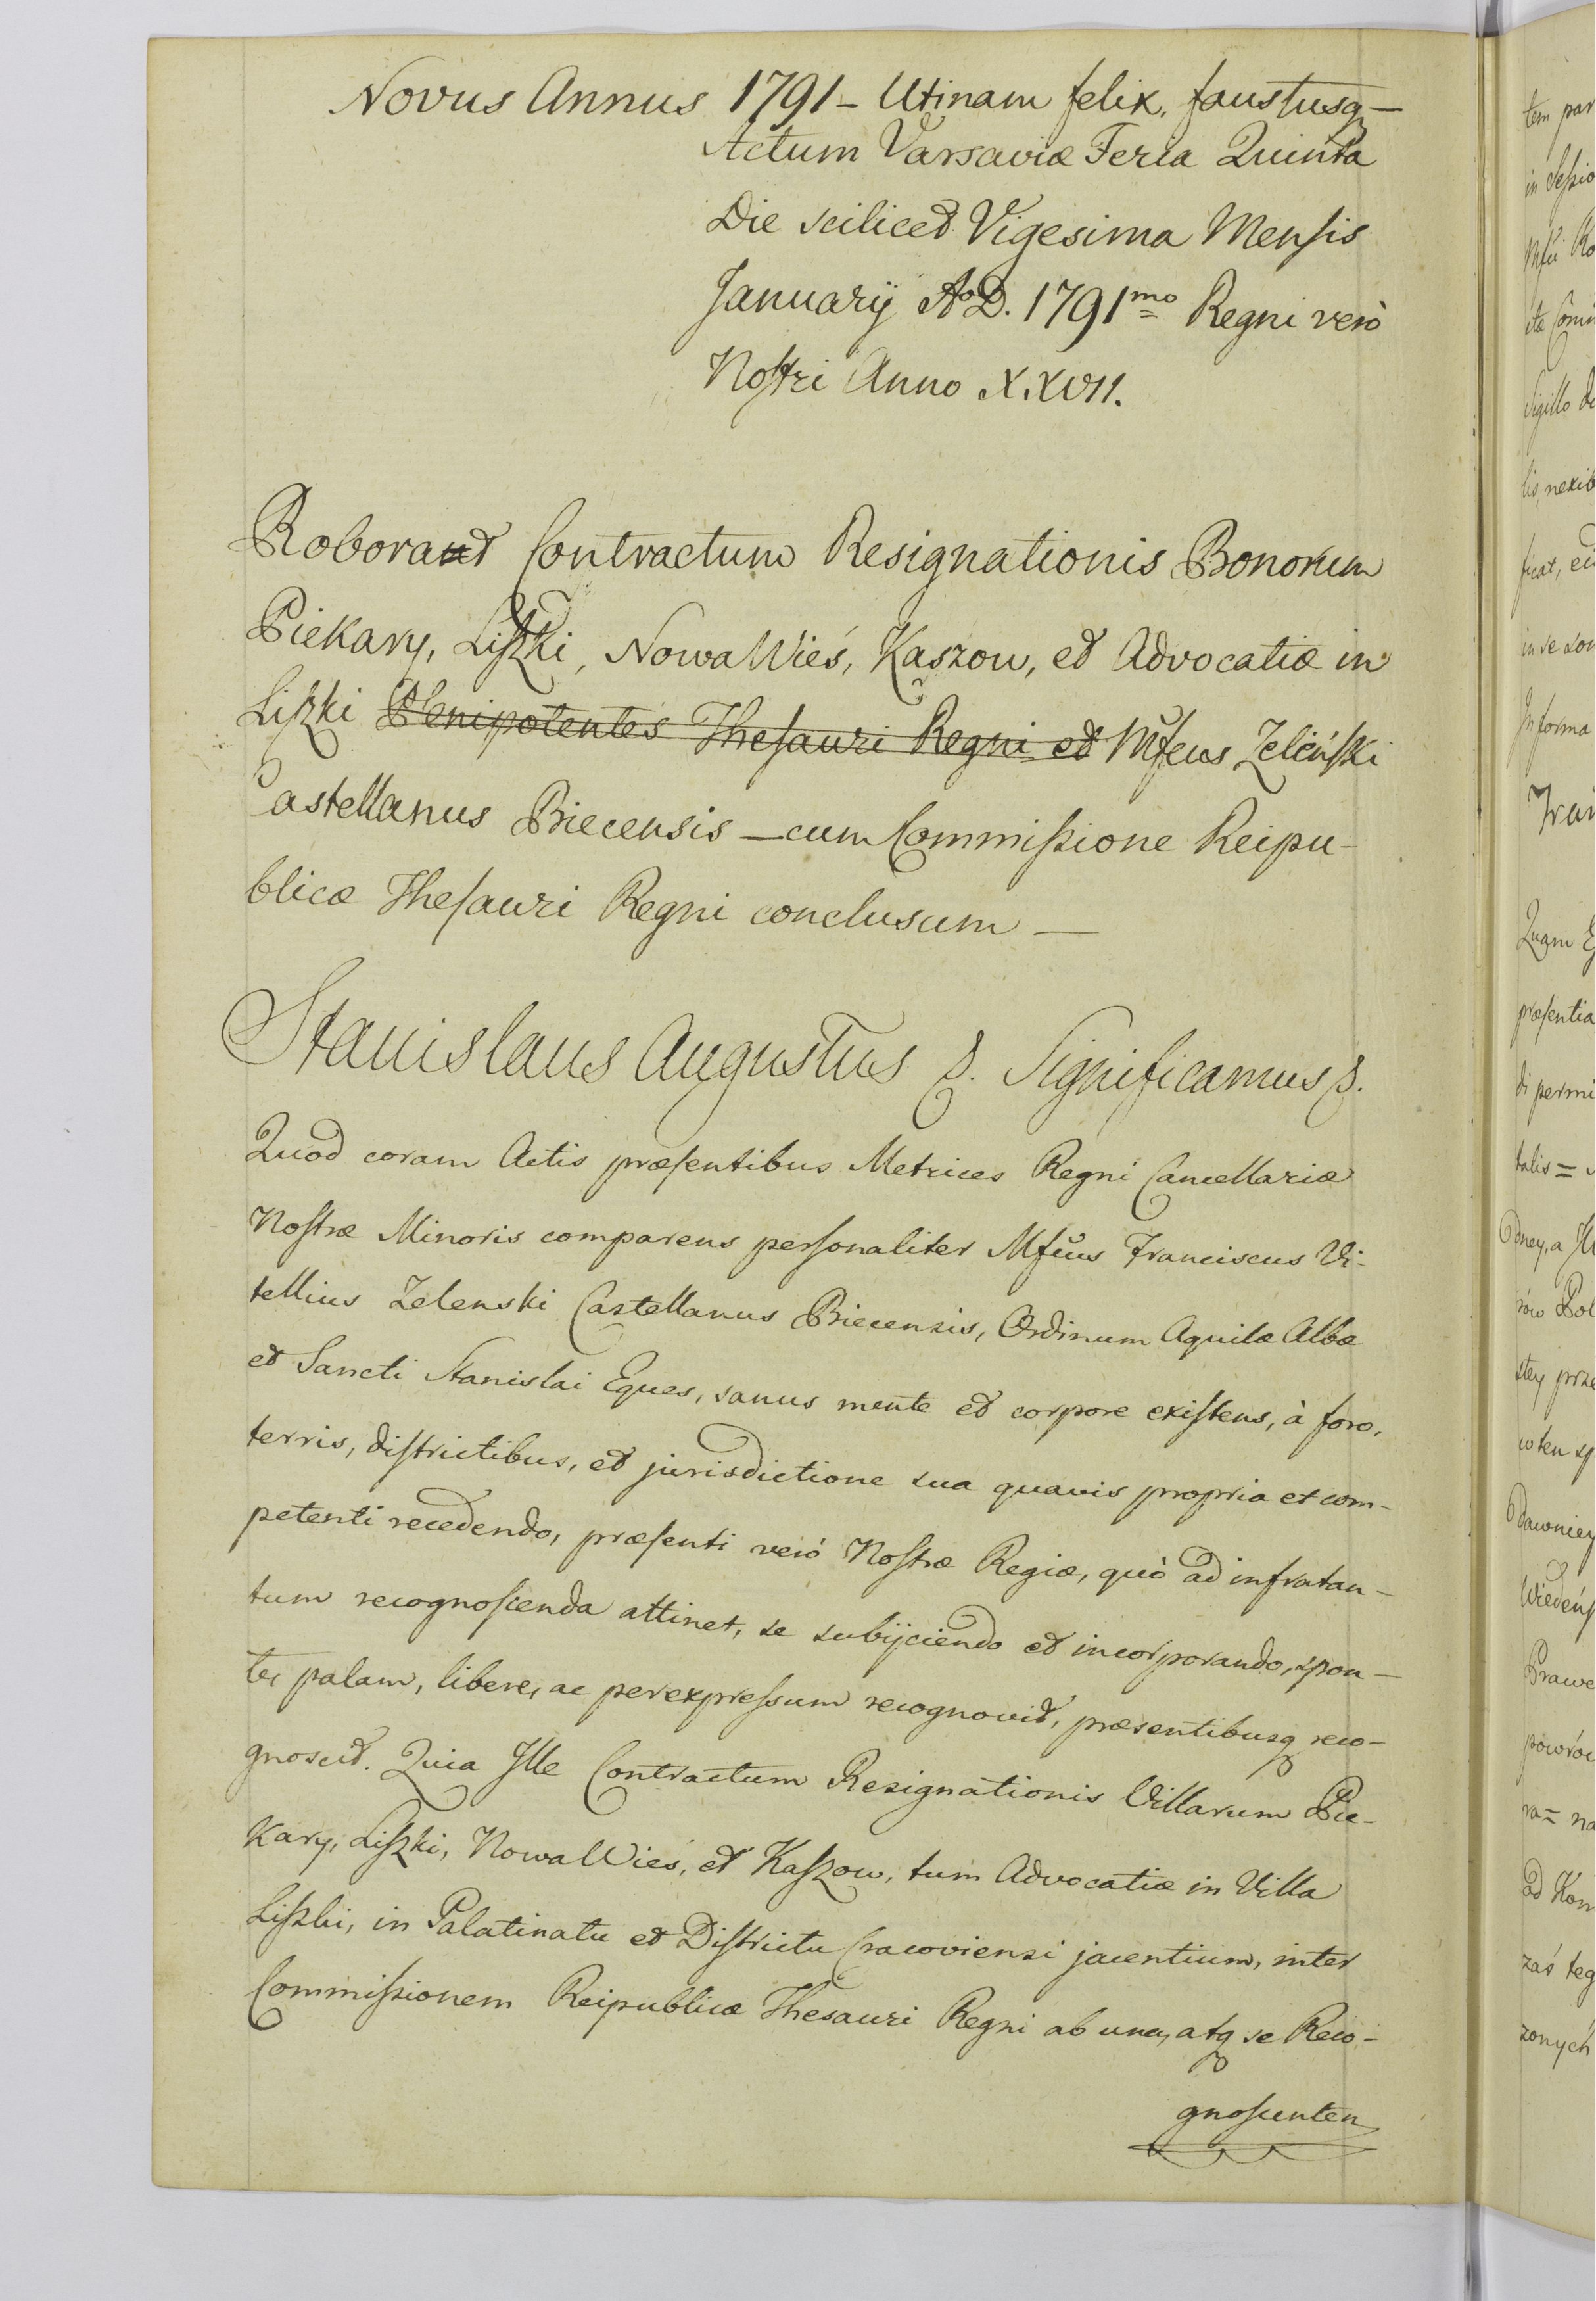 Novus Annus 1791 - Utinam felix, faustusq -
Actum Varsaviæ Feria Quinta
Die scilicet Vigesima Mensis
Januarÿ Ao D. 1791mo Regni verò
Nostri Anno X.XVII.
Roborat Contractum Resignationis Bonorum
Piekary, Liszki, Nowa Wieś, Kaszow, et Advocatiæ in
Liszki Plenipotentes Thesauri Regni et Mfcus Zeleński
Castellanus Biecensis - cum Commissione Reipu-
blicæ Thesauri Regni conclusum -
Stanislaus Augustus &. Significamus &.
Quod coram Actis præsentibus Metrices Regni Cancellariæ
Nostræ Minoris comparens personaliter Mfcus Franciscus Vi-
tellius Zelenski Castellanus Biecensis, Ordinum Aquilæ Albæ
et Sancti Stanislai Eques, sanus mente et corpore existens, à foro,
terris, districtibus, et jurisdictione sua quavis propria et com-
petenti recedendo, præsenti verò Nostræ Regiæ, quò ad infratan-
tum recognoscenda attinet, se subÿciendo et incorporando, spon-
te, palam, libere, ac per expressum recognovit, præsentibusq reco-
gnoscit. Quia Ille Contractum Resignationis Villarum Pie-
kary, Liszki, Nowa Wieś, et Kaszow, tum Advocatiæ in Villa
Liszki, in Palatinatu et Districtu Cracoviensi jacentium, inter
Commissionem Reipublicæ Thesauri Regni ab una, atq se Reco-
gnoscenten
tem par
in Sessio
Sigillo de
in se con
In forma
Quam
præsentia
di permi
talis =
stey prze
w ten sp
Dawniey
Wiedeńs
Prawe
powróc
ra= na
ad Kom
zaś teg
zonych